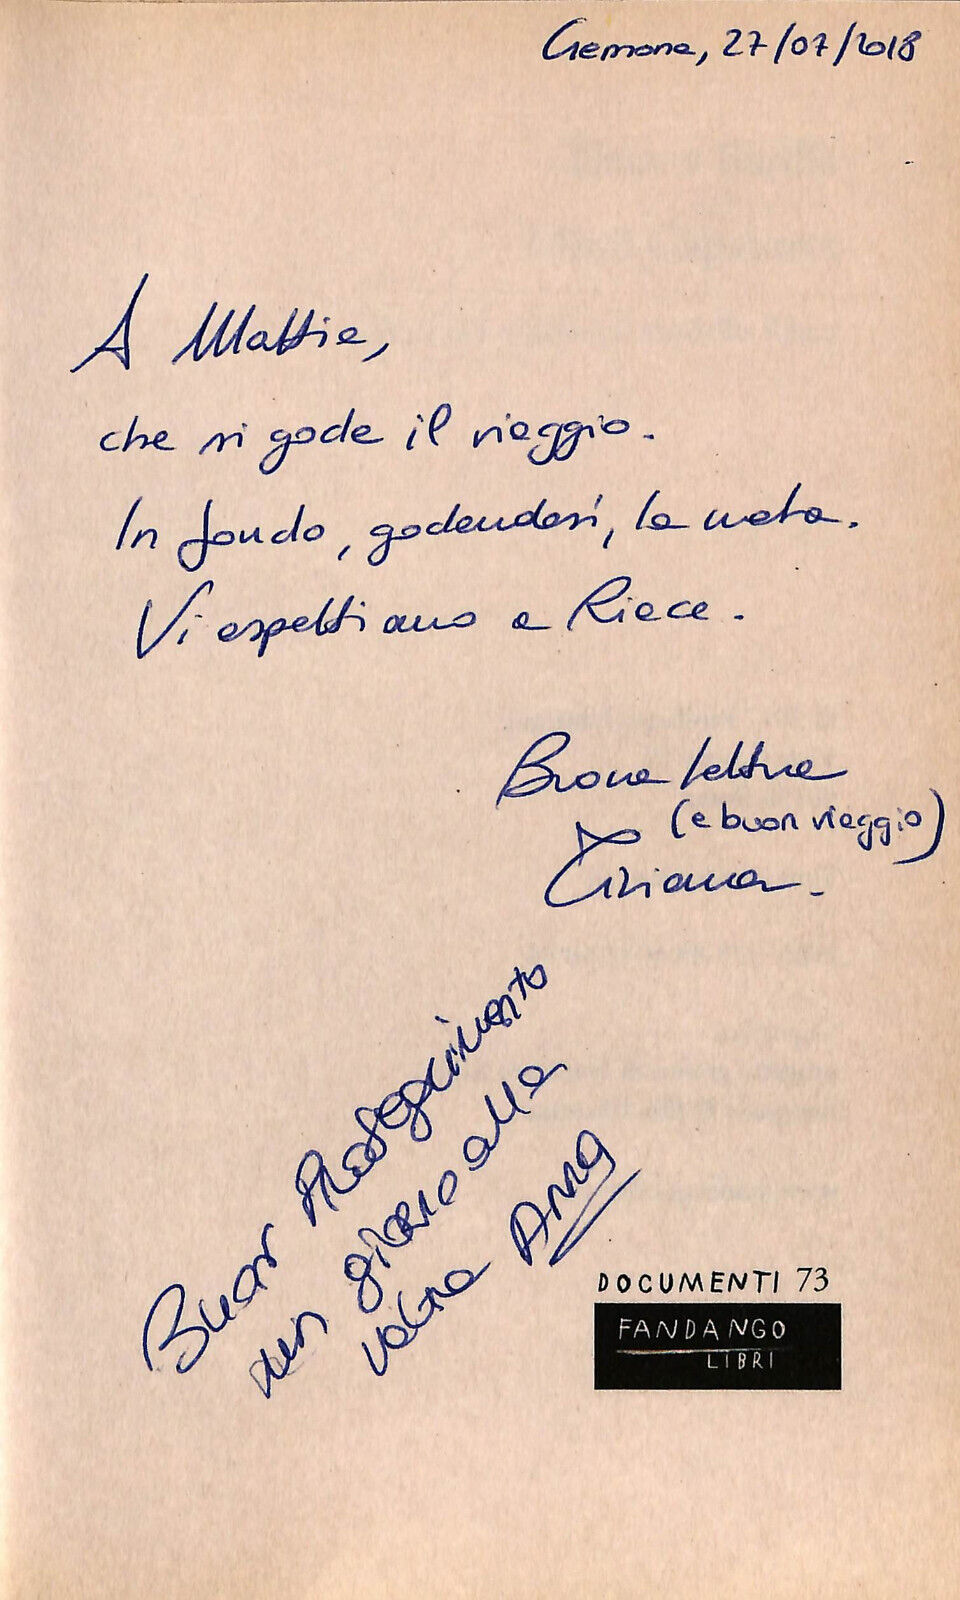 Gemona, 27/07/2018
A Mattia,
che si gode il viaggio.
In fondo, godendosi, la meta.
Vi aspettiamo a Riace.
Buona lettura
(e buon viaggio)
Tiziana.
Buon Proseguimento
un giorno alla
volta Anna
DOCUMENTI 73
FANDANGO
LIBRI